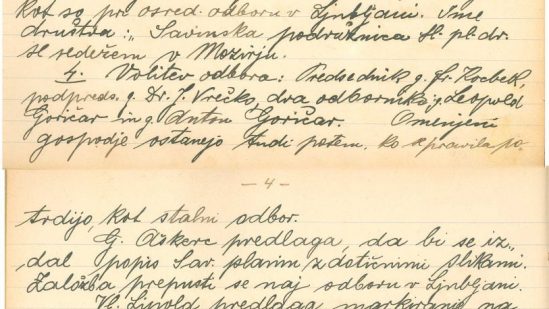 kot so pri osred. odboru v Ljubljani. Ime
društva: „Savinska podružnica Sl. pl. dr.
s sedežem v Mozirju.
4. Volitev odbora: Predsednik g. Fr. Kocbek,
podpreds. g. Dr. J. Vrečko, dva odbornika: g. Leopold
Goričar in g. Anton Goričar. Omenjeni
gospodje ostanejo tudi potem, ko se pravila po-
— 4 —
trdijo, kot stalni odbor.
G. Aškerc predlaga, da bi se iz„
dal popis Sav. planin z dotičnimi slikami.
Založba prepusti se naj odboru v Ljubljani.
predlaga markiranje na